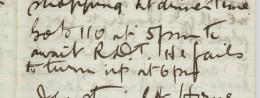 shopping at dinner time
Go to 110 at 5pm to
await R.D.T. He fails
to turn up at 6pm